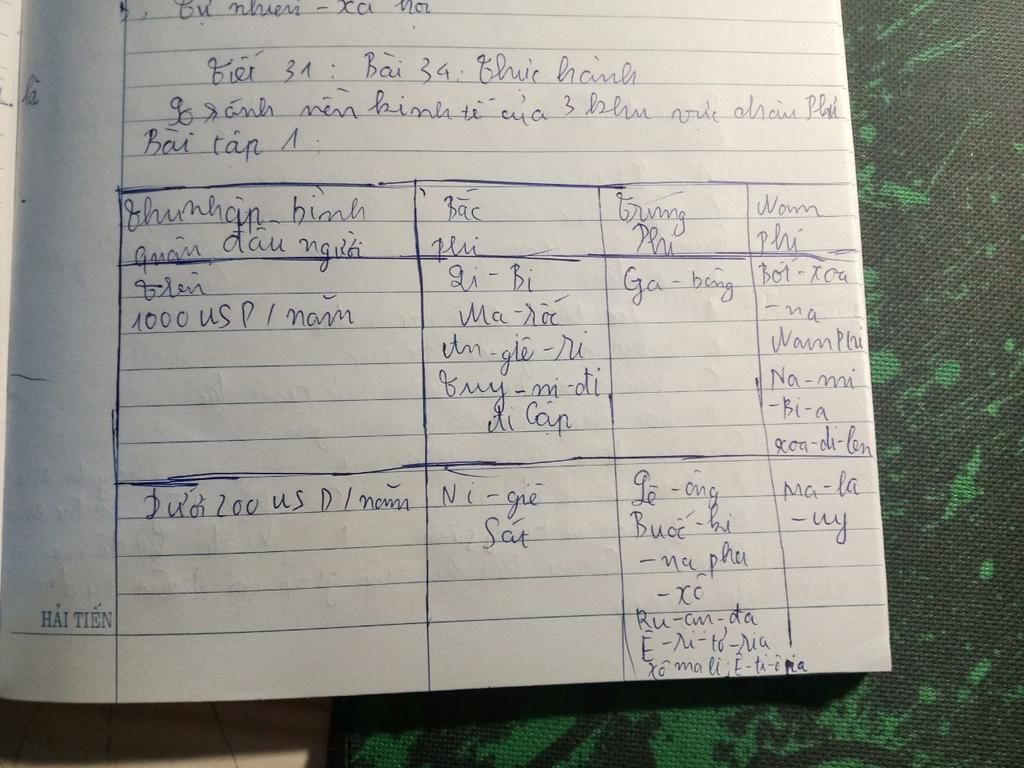 Tự nhiên - xã hội
là
Tiết 31 : Bài 34. Thực hành
so sánh nền kinh tế của 3 khu vực châu Phi
Bài tập 1 :
Thu nhập bình quân đầu người
Bắc phi
Trung Phi
Nam phi
Trên
1000 USD / năm
Li - Bi
Ma - rốc
An - giê - ri
Tuy - ni - di
Ai Cập
Ga - bông
Bốt - xoa
- na
Nam Phi
Na - mi
- Bi - a
xoa - di - len
Dưới 200 USD / năm
Ni - giê
Sát
Lê - ông
Buốc - ki
- na pha
- xô
Ru - an - đa
Ê - ri - tơ - ria
xô ma li ; Ê - ti - ô pia
Ma - la
- uy
HẢI TIẾN